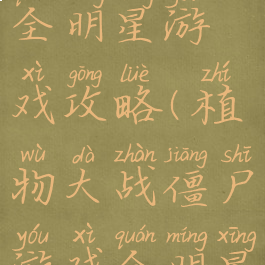 全明星游
xì gōng lüè zhí
戏攻略(植
wù dà zhàn jiāng shī
物大战僵尸
yóu xì quán míng xīng
游戏全明星